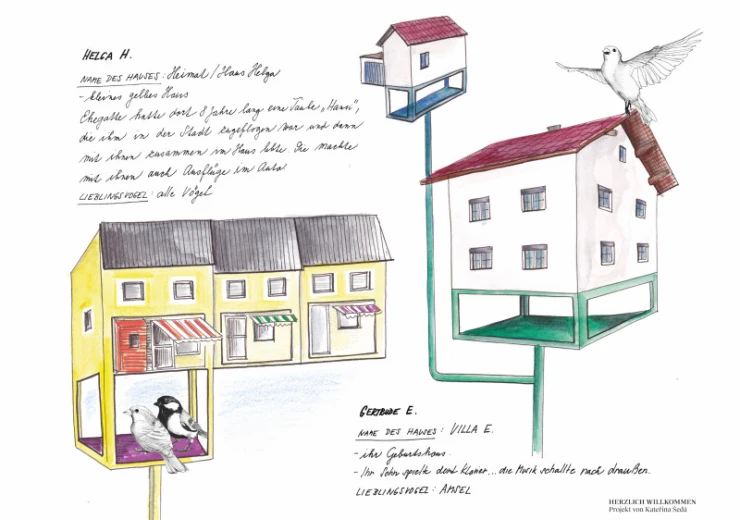 HELGA H.
NAME DES HAUSES: Heimat / Haus Helga
- kleines gelbes Haus
Ehegatte hatte dort 8 Jahre lang eine Taube „Hansi“,
die ihm in der Stadt zugeflogen war und dann
mit ihnen zusammen im Haus lebte. Die machte
mit ihnen auch Ausflüge im Auto
LIEBLINGSVOGEL: alle Vögel
GERTRUDE E.
NAME DES HAUSES: VILLA E.
- ihr Geburtshaus.
- Ihr Sohn spielte dort Klavier... die Musik schallte nach draußen.
LIEBLINGSVOGEL: AMSEL
HERZLICH WILLKOMMEN
Projekt von Kateřina Šedá